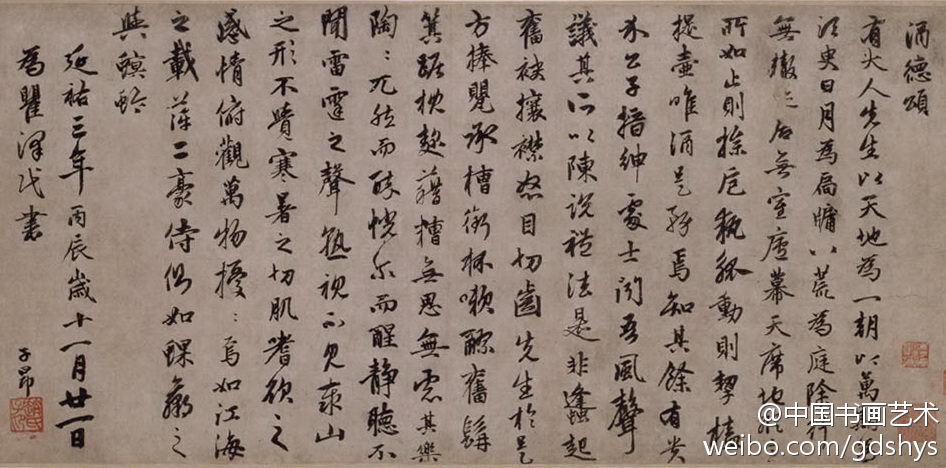 酒德頌
有大人先生以天地為一朝以萬
須臾日月為扃牖八荒為庭除行
無轍迹居無室廬幕天席地
所如止則操卮執觚動則挈榼
提壺唯酒是務焉知其餘有貴
介公子搢紳處士聞吾風聲
議其所以陳說禮法是非蠭起
奮袂攘襟怒目切齒先生於是
方捧甖承槽銜杯嗽醪奮髯
箕踞枕麴藉糟無思無慮其樂
陶〻兀然而醉恍尔而醒靜聽不
聞雷霆之聲熟視不見泰山
之形不覺寒暑之切肌嗜欲之
感情俯觀萬物擾〻焉如江海
之載萍二豪侍側如蜾蠃之
與螟蛉
延祐三年丙辰歲十一月廿一日
為瞿澤書
子昂
@中国书画艺术
weibo.com/gdshys